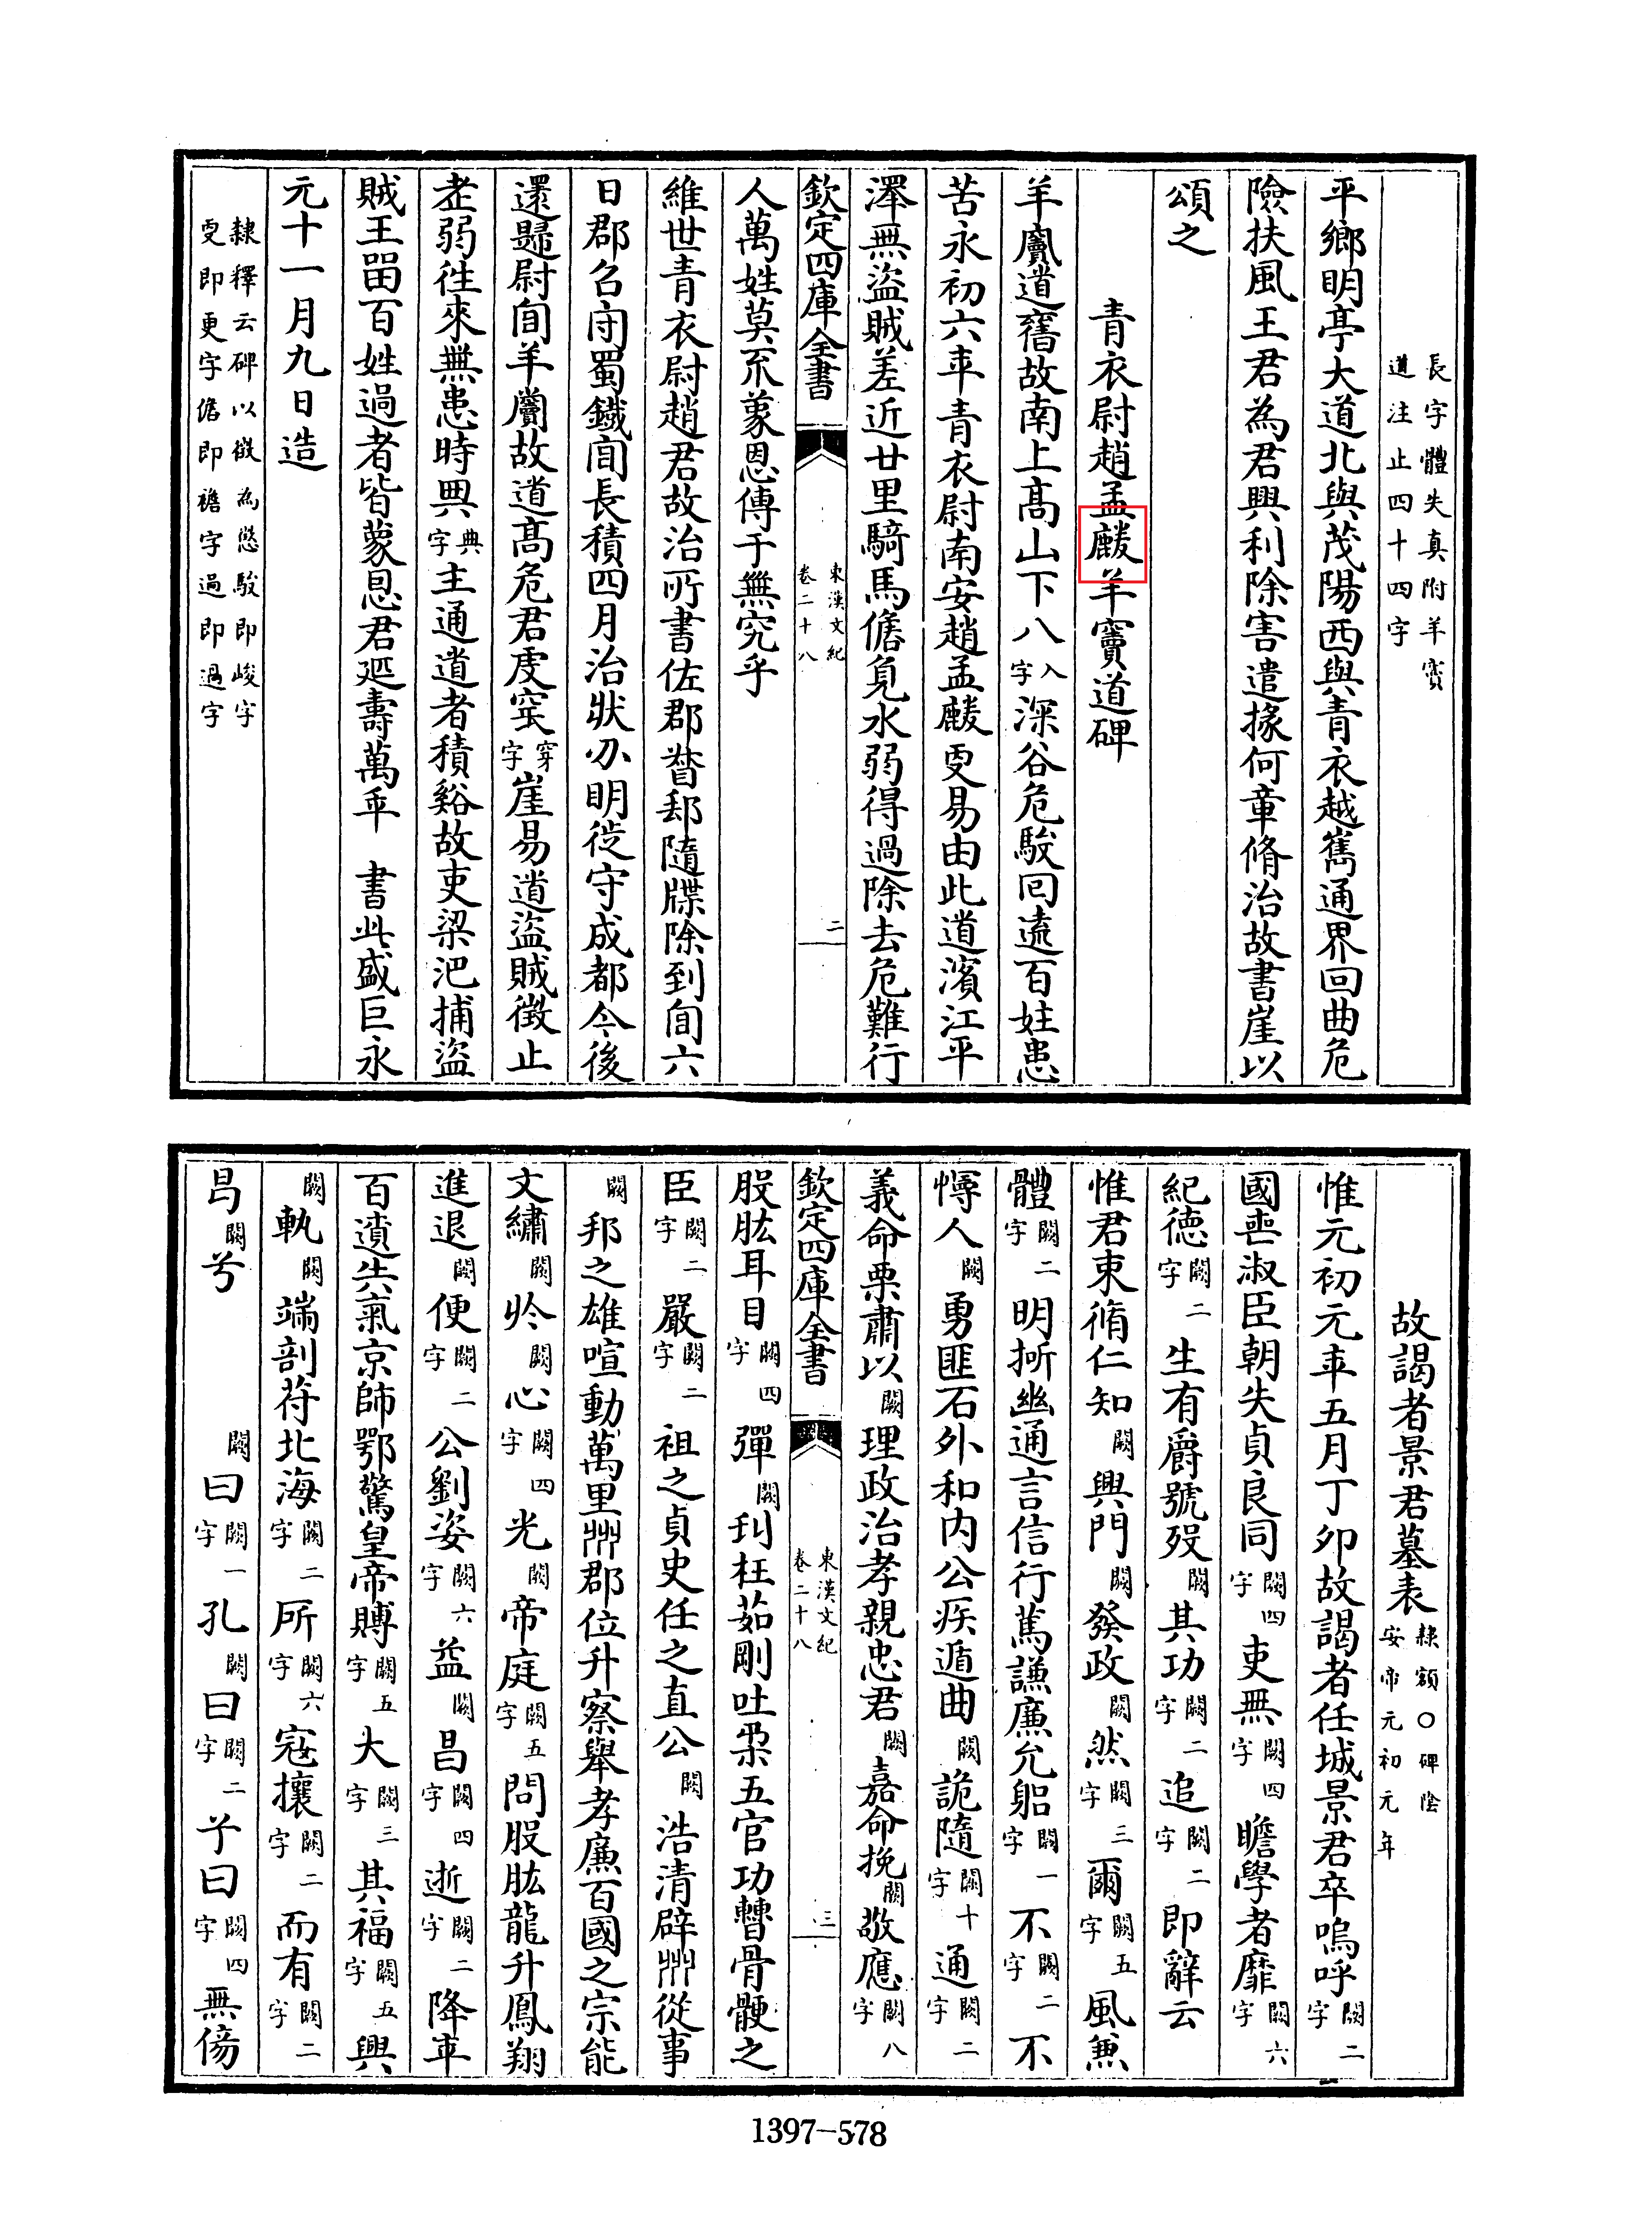 長字體失真附羊竇
道注止四十四字
平鄉明亭大道北與茂陽西與青衣越嶲通界回曲危
險扶風王君為君興利除害遣掾何童脩治故書崖以
頌之
青衣尉趙孟羊竇道碑
羊竇道舊故南上高山下八入字深谷危駿回遠百姓患
苦永初六年青衣尉南安趙孟叓易由此道濱江平
澤無盜賊差近廿里騎馬儋負水弱得過除去危難行
欽定四庫全書 東漢文紀 卷二十八 二
人萬姓莫不蒙恩傳于無窮乎
維世青衣尉趙君故治所書佐郡督郵隨牒除到間六
日郡召守蜀鐵間長積四月治狀分明從守成都令後
還歸尉間羊竇故道高危君虔穿穿字崖易道盜賊徵止
老弱往來無患時典典字主通道者積谿故吏梁汜捕盜
賊王留百姓過者皆蒙恩君延壽萬年 書此盛巨永
元十一月九日造
隸釋云碑以徵為懲駿即峻字
叓即更字儋即襜字過即過字
故謁者景君墓表隸額○碑陰安帝元初元年
惟元初元年五月丁卯故謁者任城景君卒嗚呼闕二字
國喪淑臣朝失貞良同闕四字吏無闕四字瞻學者靡闕六字
紀德闕二字生有爵號歿闕其功闕二字追闕二字即辭云
惟君束脩仁知闕興門闕發政闕然闕三字爾闕五字風兼
體闕二字明折幽通言信行篤謙廉允躬闕一字不闕二字不
慱人闕勇匪石外和内公疾遁曲闕詭隨闕十字通闕二字
義命栗肅以闕理政治孝親忠君闕嘉命挽闕敬應闕八字
欽定四庫全書 東漢文紀 卷二十八 三
股肱耳目闕四字彈闕刋枉茹剛吐柔五官功曹骨骾之
臣闕二字嚴闕二字祖之貞史任之直公闕浩清辟州從事
闕邦之雄喧動萬里州郡位升察舉孝廉百國之宗能
文繡闕闕心闕四字光闕帝庭闕五字問股肱龍升鳳翔
進退闕便闕二字公劉姿闕六字益闕昌闕四字逝闕二字降年
百遺失氣京師鄂驚皇帝賻闕五字大闕三字其福闕五字興
闕執闕端剖符北海闕二字所闕六字寇攘闕二字而有闕二字
昌闕兮 闕曰闕一字孔闕曰闕二字子曰闕四字無傷
1397-578